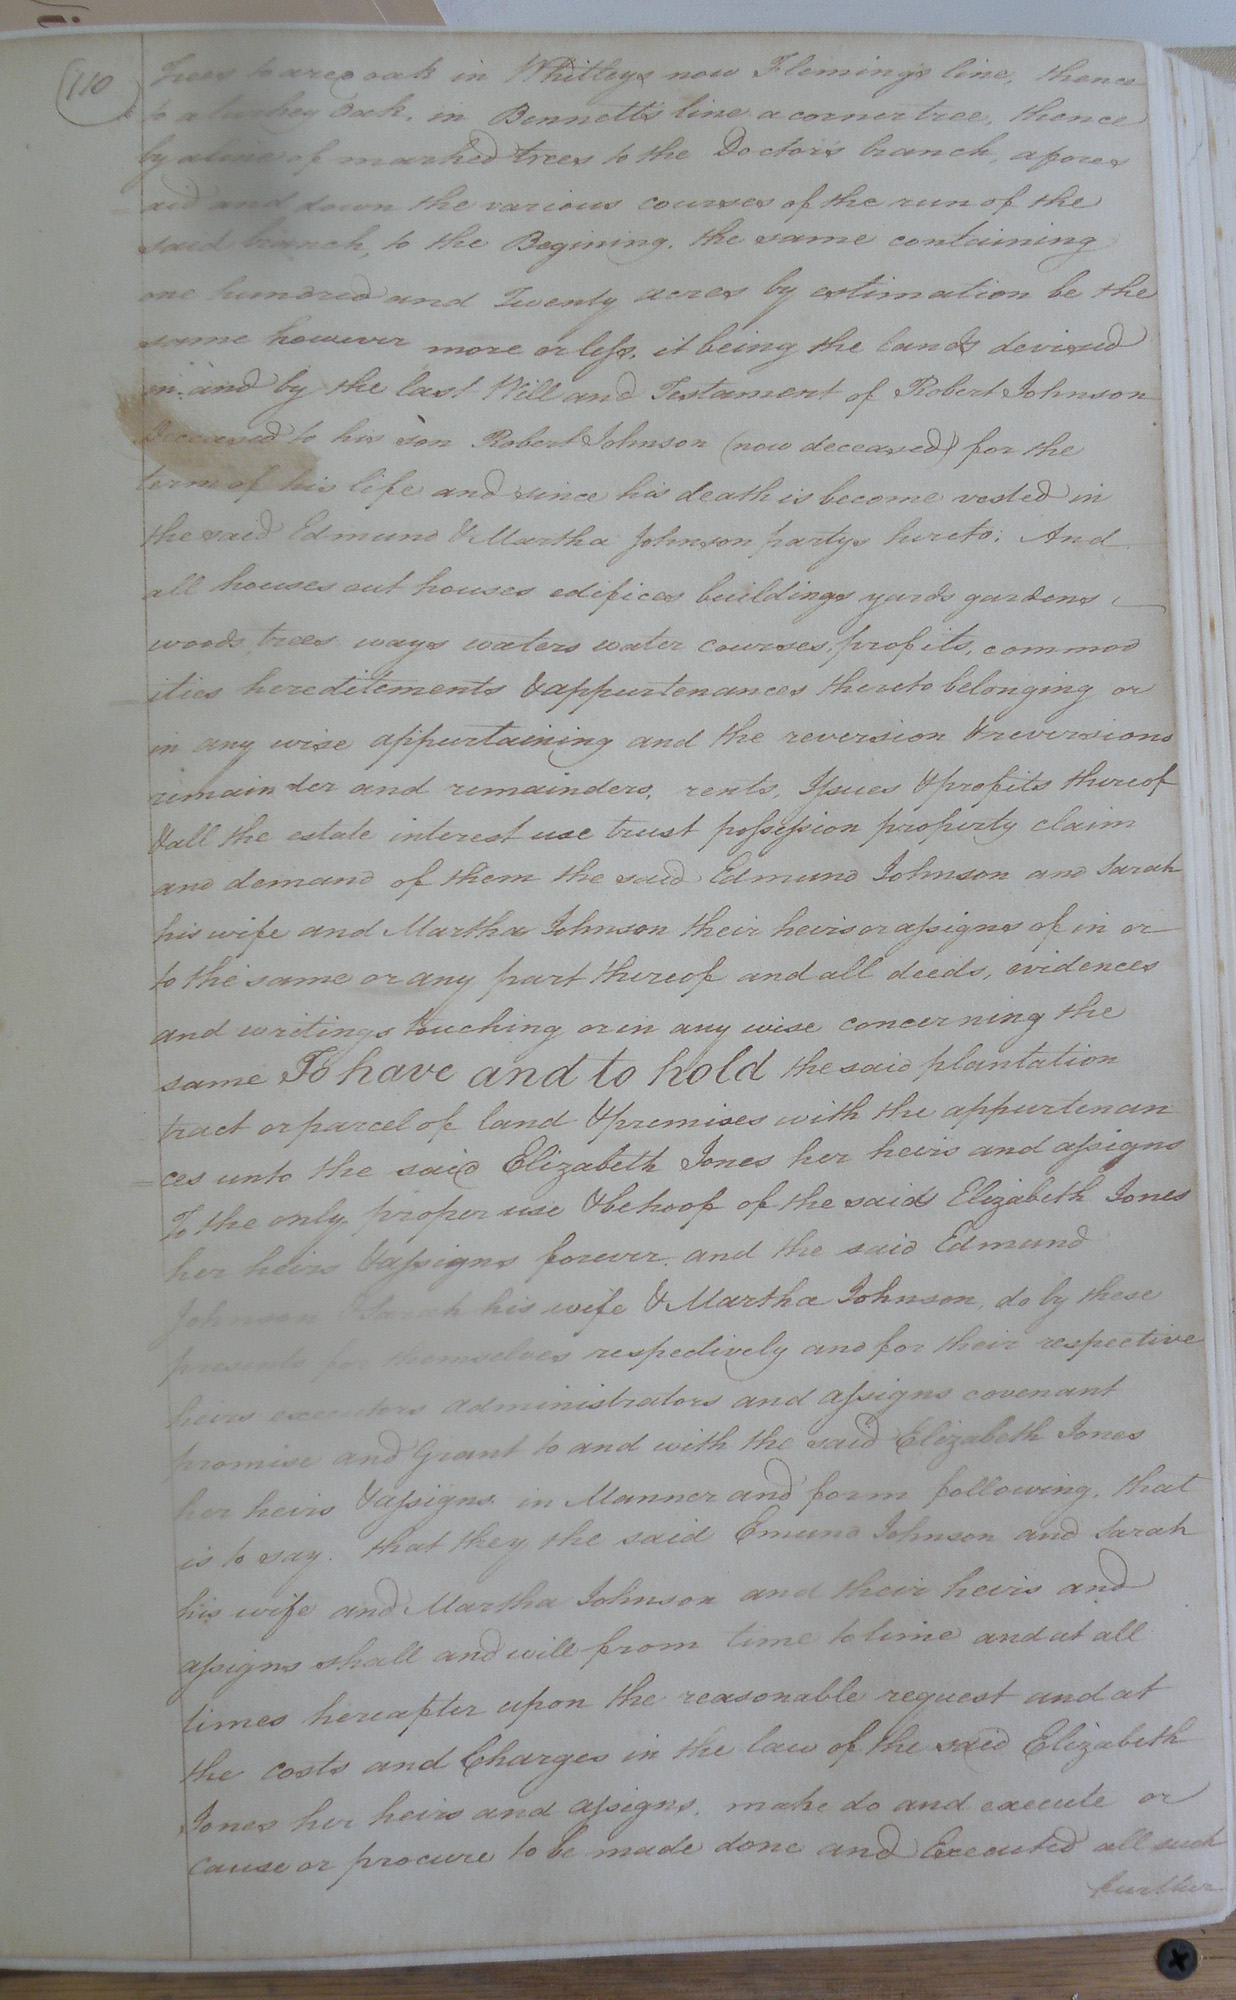 110
Trees to a red oak in Whitleys now Flemings line, thence
to a turkey Oak, in Bennetts line a corner tree, thence
by a line of marked trees to the Doctors branch, afores
aid and down the various courses of the run of the
said branch, to the Begining. the same containing
one hundred and Twenty acres by estimation be the
same however more or less, it being the lands devised
in and by the last Will and Testament of Robert Johnson
Deceased to his son Robert Johnson (now deceased) for the
term of his life and since his death is become vested in
the said Edmund & Martha Johnson partys hereto; And
all houses out houses edifices buildings yards gardens
woods trees ways waters water courses, profits, commod
ities hereditements & appurtenances thereto belonging or
in any wise appurtaining and the reversion & reversions
remainder and remainders, rents, Issues & profits thereof
& all the estate interest use trust possession property claim
and demand of them the said Edmund Johnson and Sarah
his wife and Martha Johnson their heirs or assigns of in or
to the same or any part thereof and all deeds, evidences
and writings touching or in any wise concerning the
same To have and to hold the said plantation
tract or parcel of land & premises with the appurtenan
ces unto the said Elizabeth Jones her heirs and assigns
To the only proper use & behoof of the said Elizabeth Jones
her heirs & assigns forever. and the said Edmund
Johnson Sarah his wife & Martha Johnson, do by these
presents for themselves respectively and for their respective
heirs executors administrators and assigns covenant
promise and Grant to and with the said Elizabeth Jones
her heirs & assigns in Manner and form following, that
is to say. that they the said Emund Johnson and Sarah
his wife and Martha Johnson and their heirs and
assigns shall and will from time to time and at all
times hereafter upon the reasonable request and at
the costs and Charges in the law of the said Elizabeth
Jones her heirs and assigns, make do and execute or
cause or procure to be made done and Executed all such
further